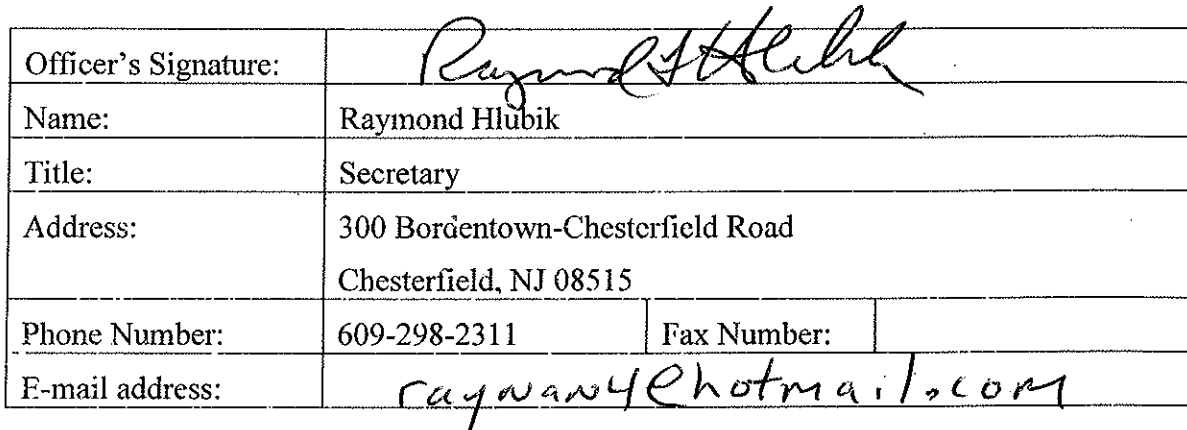 Officer's Signature: Raymond F Hlubik
Name: Raymond Hlubik
Title: Secretary
Address: 300 Bordentown-Chesterfield Road
Chesterfield, NJ 08515
Phone Number: 609-298-2311 Fax Number:
E-mail address: raynan4@hotmail.com